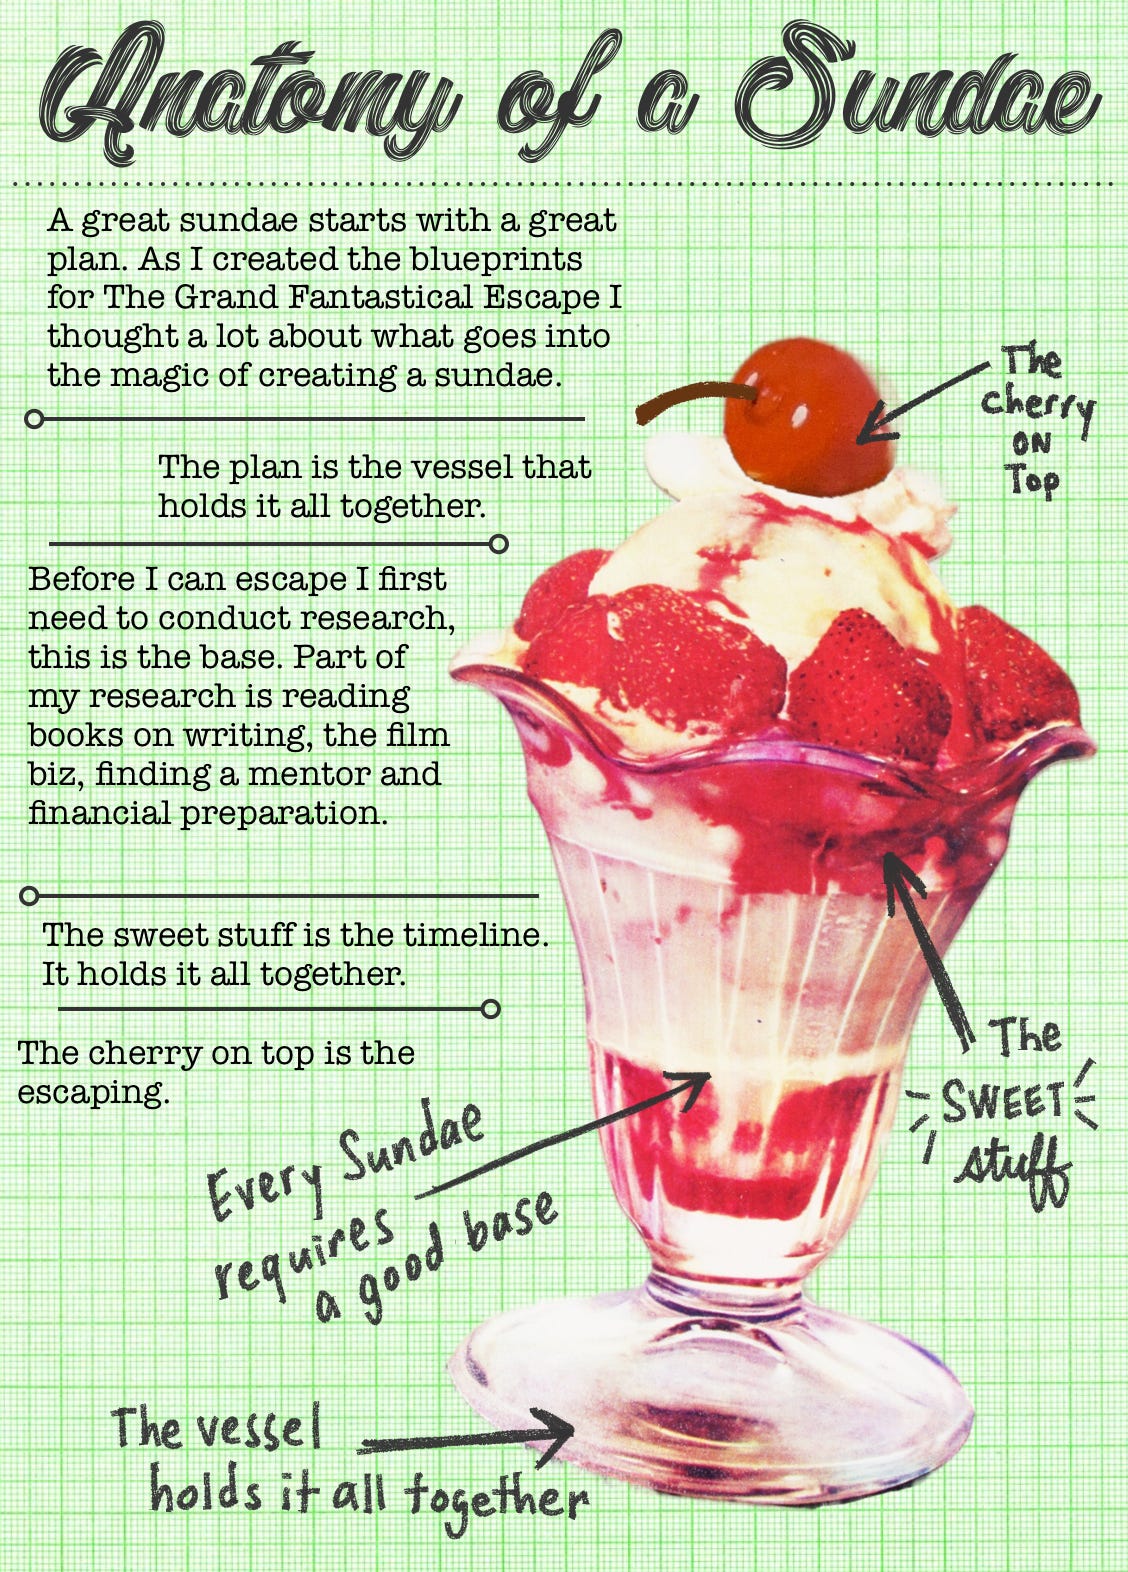 Anatomy of a Sundae
A great sundae starts with a great
plan. As I created the blueprints
for The Grand Fantastical Escape I
thought a lot about what goes into
the magic of creating a sundae.
The plan is the vessel that
holds it all together.
Before I can escape I first
need to conduct research,
this is the base. Part of
my research is reading
books on writing, the film
biz, finding a mentor and
financial preparation.
The sweet stuff is the timeline.
It holds it all together.
The cherry on top is the
escaping.
The
cherry
ON
Top
The
SWEET
stuff
Every Sundae
requires
a good base
The vessel
holds it all together